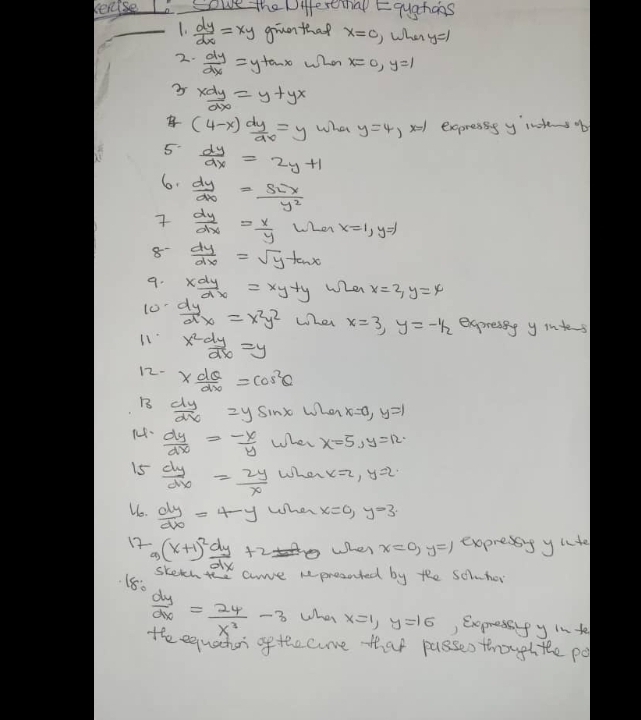 Exercise 1: Solve the Differential Equations
1. dy/dx = xy given that x=0, when y=1
2. dy/dx = ytanx when x=0, y=1
3. xdy/dx = y+yx
4 (4-x) dy/dx = y when y=4, x=1 expressing y in terms of
5. dy/dx = 2y+1
6. dy/dx = sinx/y²
7 dy/dx = x/y when x=1, y=1
8- dy/dx = √y tanx
9. xdy/dx = xy+y when x=2, y=4
10. dy/dx = x²y² when x=3, y=-1/2 expressing y in terms
11. x²dy/dx = y
12- x dθ/dx = cos²θ
13 dy/dx = y Sinx when x=0, y=1
14. dy/dx = -x/y when x=5, y=12.
15 dy/dx = 2y/x when x=2, y=2.
16. dy/dx = 4-y when x=0, y=3.
17. (x+1)² dy/dx +2 when x=0, y=1 expressing y in te
sketch the curve represented by the solution
18. dy/dx = 24/x³ -3 when x=1, y=16, Expressing y in te
the equation of the curve that passes through the po